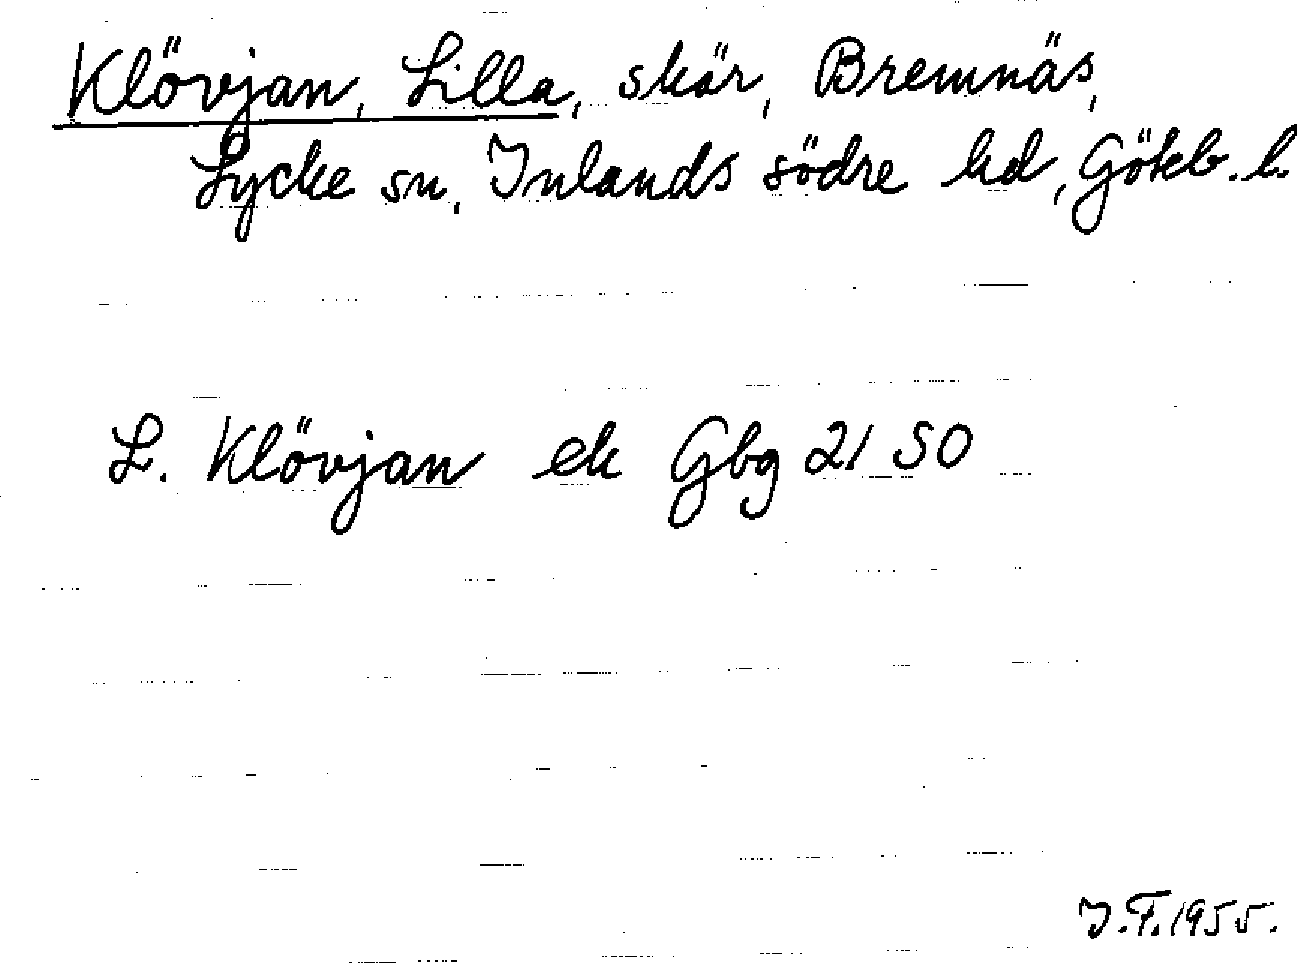 Klövjan, Lilla, skär, Bremnäs,
Lycke sn, Inlands södre hd, Gökb. l.
L. Klövjan ek Gbg 21 SO
J.F. 1955.